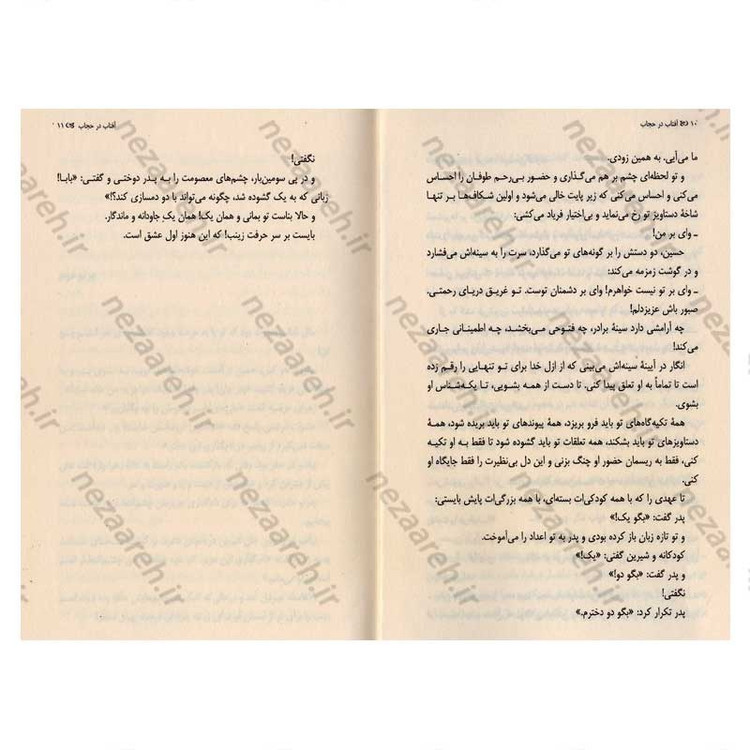 ۱۰ آفتاب در حجاب
ما می‌آیی، به همین زودی.
و تو لحظه‌ای چشم بر هم می‌گذاری و حضور بی‌رحم طوفان را احساس
می‌کنی و احساس می‌کنی که زیر پایت خالی می‌شود و اولین شکاف‌ها بر تنها
شاخهٔ دستاویز تو رخ می‌نماید و بی‌اختیار فریاد می‌کشی:
ـ وای بر من!
حسین، دو دستش را بر گونه‌های تو می‌گذارد، سرت را به سینه‌اش می‌فشارد
و در گوشت زمزمه می‌کند:
ـ وای بر تو نیست خواهرم! وای بر دشمنان توست. تو غریق دریای رحمتی.
صبور باش عزیزدلم!
چه آرامشی دارد سینهٔ برادر، چه فتوحی می‌بخشد، چه اطمینانی جاری
می‌کند!
انگار در آیینهٔ سینه‌اش می‌بینی که از ازل خدا برای تو تنهایی را رقم زده
است تا تماماً به او تعلق پیدا کنی. تا دست از همه بشویی، تا یکه‌شناس او
بشوی.
همهٔ تکیه‌گاه‌های تو باید فرو بریزد، همهٔ پیوندهای تو باید بریده شود، همهٔ
دستاویزهای تو باید بشکند، همه تعلقات تو باید گشوده شود تا فقط به او تکیه
کنی، فقط به ریسمان حضور او چنگ بزنی و این دل بی‌نظیرت را فقط جایگاه او
کنی.
تا عهدی را که با همه کودکی‌ات بسته‌ای، با همه بزرگی‌ات پایش بایستی:
پدر گفت: «بگو یک!»
و تو تازه زبان باز کرده بودی و پدر به تو اعداد را می‌آموخت.
کودکانه و شیرین گفتی: «یک!»
و پدر گفت: «بگو دو!»
نگفتی!
پدر تکرار کرد: «بگو دو دخترم.»
آفتاب در حجاب ۱۱
نگفتی!
و در پی سومین‌بار، چشم‌های معصومت را به پدر دوختی و گفتی: «بابا!
زبانی که به یک گشوده شد، چگونه می‌تواند با دو دمسازی کند؟!»
و حالا بناست تو بمانی و همان یک! همان یکِ جاودانه و ماندگار.
بایست بر سر حرفت زینب! که این هنوز اول عشق است.
nezaareh.ir
nezaareh.ir
nezaareh.ir
nezaareh.ir
nezaareh.ir
nezaareh.ir
nezaareh.ir
nezaareh.ir